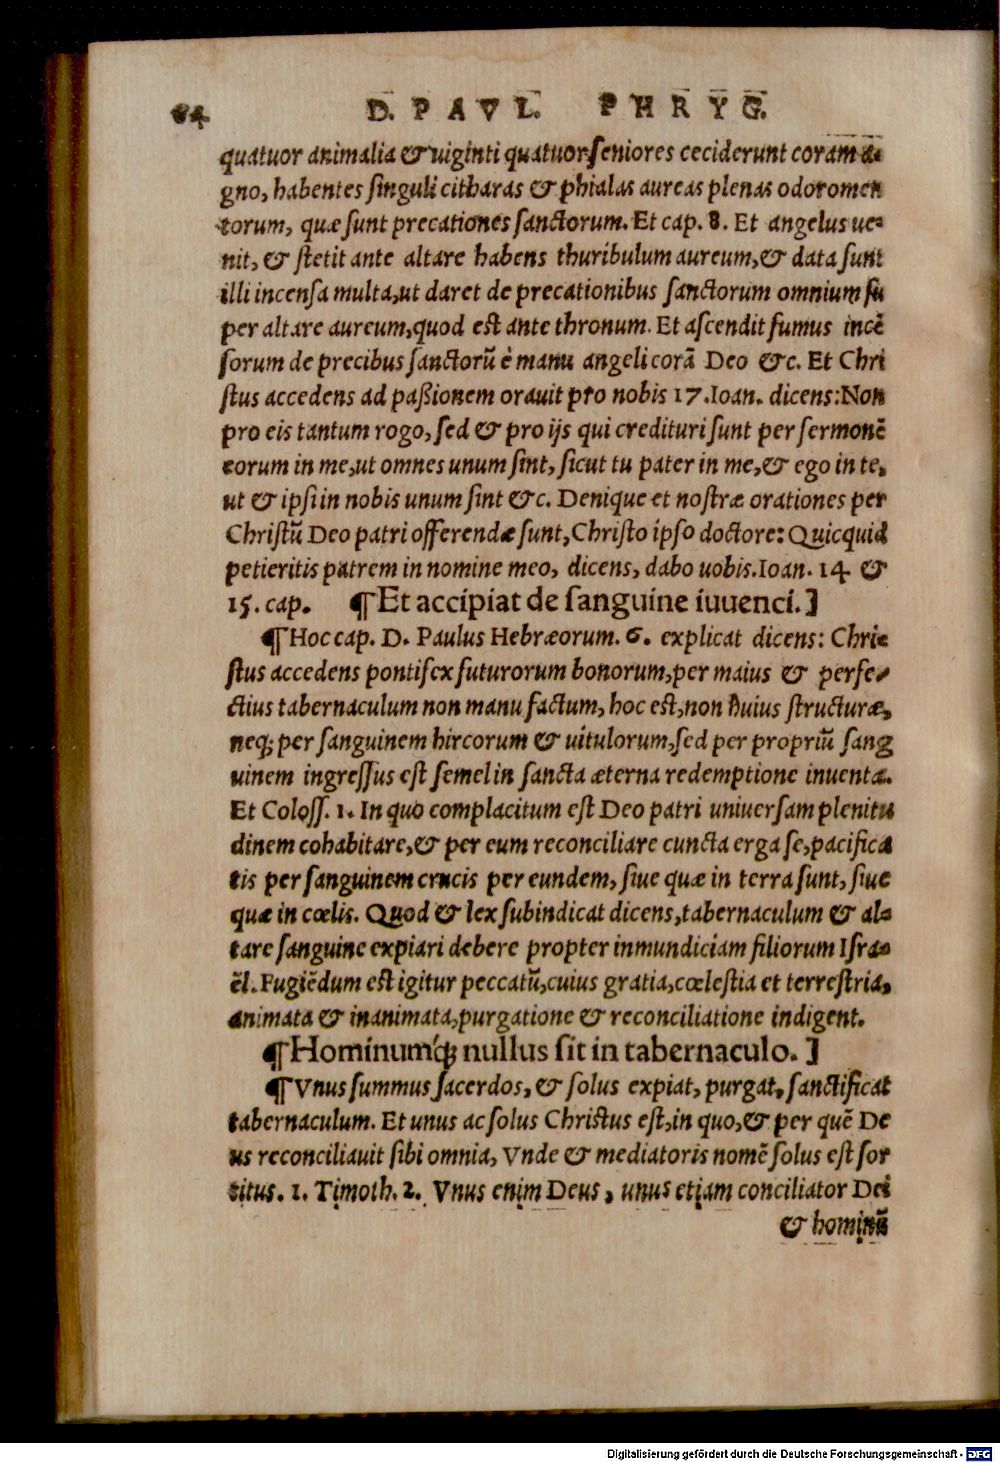 64 D. PAVL. PHRYG.
quatuor animalia & uiginti quatuor seniores ceciderunt coram a=
gno, habentes singuli citharas & phialas aureas plenas odoramen
torum, quæ sunt precationes sanctorum. Et cap. 8. Et angelus ue=
nit, & stetit ante altare habens thuribulum aureum, & data sunt
illi incensa multa, ut daret de precationibus sanctorum omnium su
per altare aureum, quod est ante thronum. Et ascendit fumus incē
sorum de precibus sanctorū è manu angeli corā Deo &c. Et Chri
stus accedens ad paßionem orauit pro nobis 17. Ioan. dicens: Non
pro eis tantum rogo, sed & pro ijs qui credituri sunt per sermonē
eorum in me, ut omnes unum sint, sicut tu pater in me, & ego in te,
ut & ipsi in nobis unum sint &c. Denique et nostræ orationes per
Christū Deo patri offerendæ sunt, Christo ipso doctore: Quicquid
petieritis patrem in nomine meo, dicens, dabo uobis. Ioan. 14 &
15. cap. ¶ Et accipiat de sanguine iuuenci.]
¶ Hoc cap. D. Paulus Hebræorum. 6. explicat dicens: Chri=
stus accedens pontifex futurorum bonorum, per maius & perfe=
ctius tabernaculum non manu factum, hoc est, non huius structuræ,
neq; per sanguinem hircorum & uitulorum, sed per propriū sang
uinem ingressus est semel in sancta æterna redemptione inuenta.
Et Coloss. 1. In quo complacitum est Deo patri uniuersam plenitu
dinem cohabitare, & per eum reconciliare cuncta erga se, pacifica
tis per sanguinem crucis per eundem, siue quæ in terra sunt, siue
quæ in cœlis. Quod & lex subindicat dicens, tabernaculum & al=
tare sanguine expiari debere propter inmundiciam filiorum Isra=
ël. Fugiēdum est igitur peccatū, cuius gratia, cœlestia et terrestria,
animata & inanimata, purgatione & reconciliatione indigent.
¶ Hominumq́; nullus sit in tabernaculo.]
¶ Vnus summus sacerdos, & solus expiat, purgat, sanctificat
tabernaculum. Et unus ac solus Christus est, in quo, & per quē De
us reconciliauit sibi omnia, Vnde & mediatoris nomē solus est sor
titus. 1. Timoth. 2. Vnus enim Deus, unus etiam conciliator Dei
& hominū
Digitalisierung gefördert durch die Deutsche Forschungsgemeinschaft - DFG